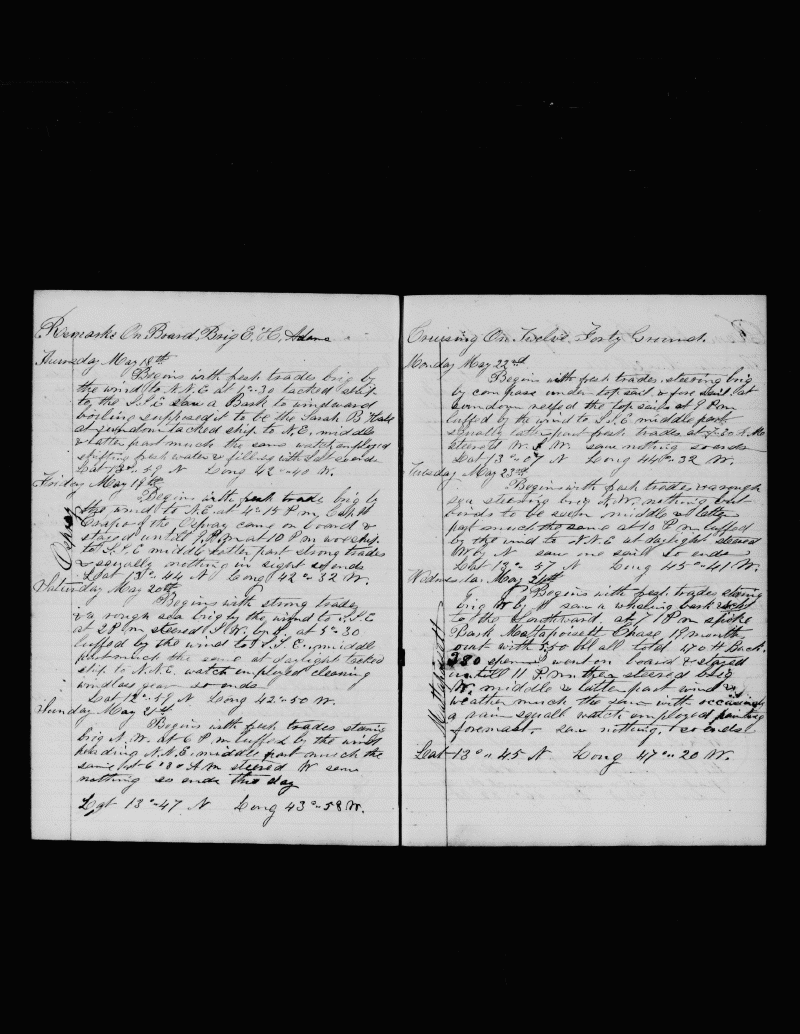 Remarks On Board Brig E. H. Adams
Thursday May 18th
Begins with fresh trades brig by
the wind to N.N.E at 4"30 tacked ship
to the S.S.E saw a Bark to windward
boiling supposed it to be the Sarah B Hale
at sundown tacked ship to N.E. middle
& latter part much the same watch employed
shifting fresh water & filling with Salt so ends
Lat 13°"59 N Long 42"40 W.
Friday May 19th
Begins with fresh trade brig by
the wind to N.E at 4"15 P.m Capt
of the Osprey came on board &
stayed untill 9 P.m at 10 P m wore ship
to S.S.E middle latter part strong trades
& squally nothing in sight so ends
Lat 13°"44 N Long 42°"32 W.
Osprey
Saturday May 20th
Begins with strong trades
& a rough sea brig by the wind to S.S.E
at 2 P m steered S.W. by S. at 5"30
luffed by the wind to S.S.E. middle
part much the same at daylight tacked
ship to N.N.E. watch employed cleaning
windlass gear so ends
Lat 12°"59 N Long 42"50 W.
Sunday May 21st
Begins with fresh trades staring
brig N.W. at 6 P.m luffed by the wind
heading N.N.E. middle part much the
same at 6"30 A.m steered W saw
nothing so ends the day
Lat 13°"47 N Long 43°"58 W.
Cruising On Twelve Forty Ground.
Monday May 22nd
Begins with fresh trades steering brig
by compass under top sail & fore sail. at
Sundown reefed the top sails at 9 P m
luffed by the wind to S.S.E middle part
squally latter part fresh trades at 7"30 A. M.
steered W.S.W. saw nothing so ends
Lat 13°"07 N Long 44°"32 W.
Tuesday May 23rd
Begins with fresh trades & rough
sea steering brig N.W. nothing but
birds to be seen middle & latter
part much the same at 10 P m luffed
by the wind to N.N.E at daylight steered
W by N saw one sail so ends
Lat 13"57 N Long 45°"41 W.
Wednesday May 24th
Begins with fresh trades staring
brig W by N saw a whaling bark
to the Southward. at 7 P m spoke
Bark Mattapoisett Chase 19 month
out with 550 bbl all told 470 H Back.
380 sperm went on board & stayed
untill 11 P.m then steered brig
W. middle & latter part wind &
weather much the same with occasionaly
a rain squall watch employed painting
foremast. saw nothing, so ends
Mattapoisett
Lat 13°"45 N Long 47°"20 W.